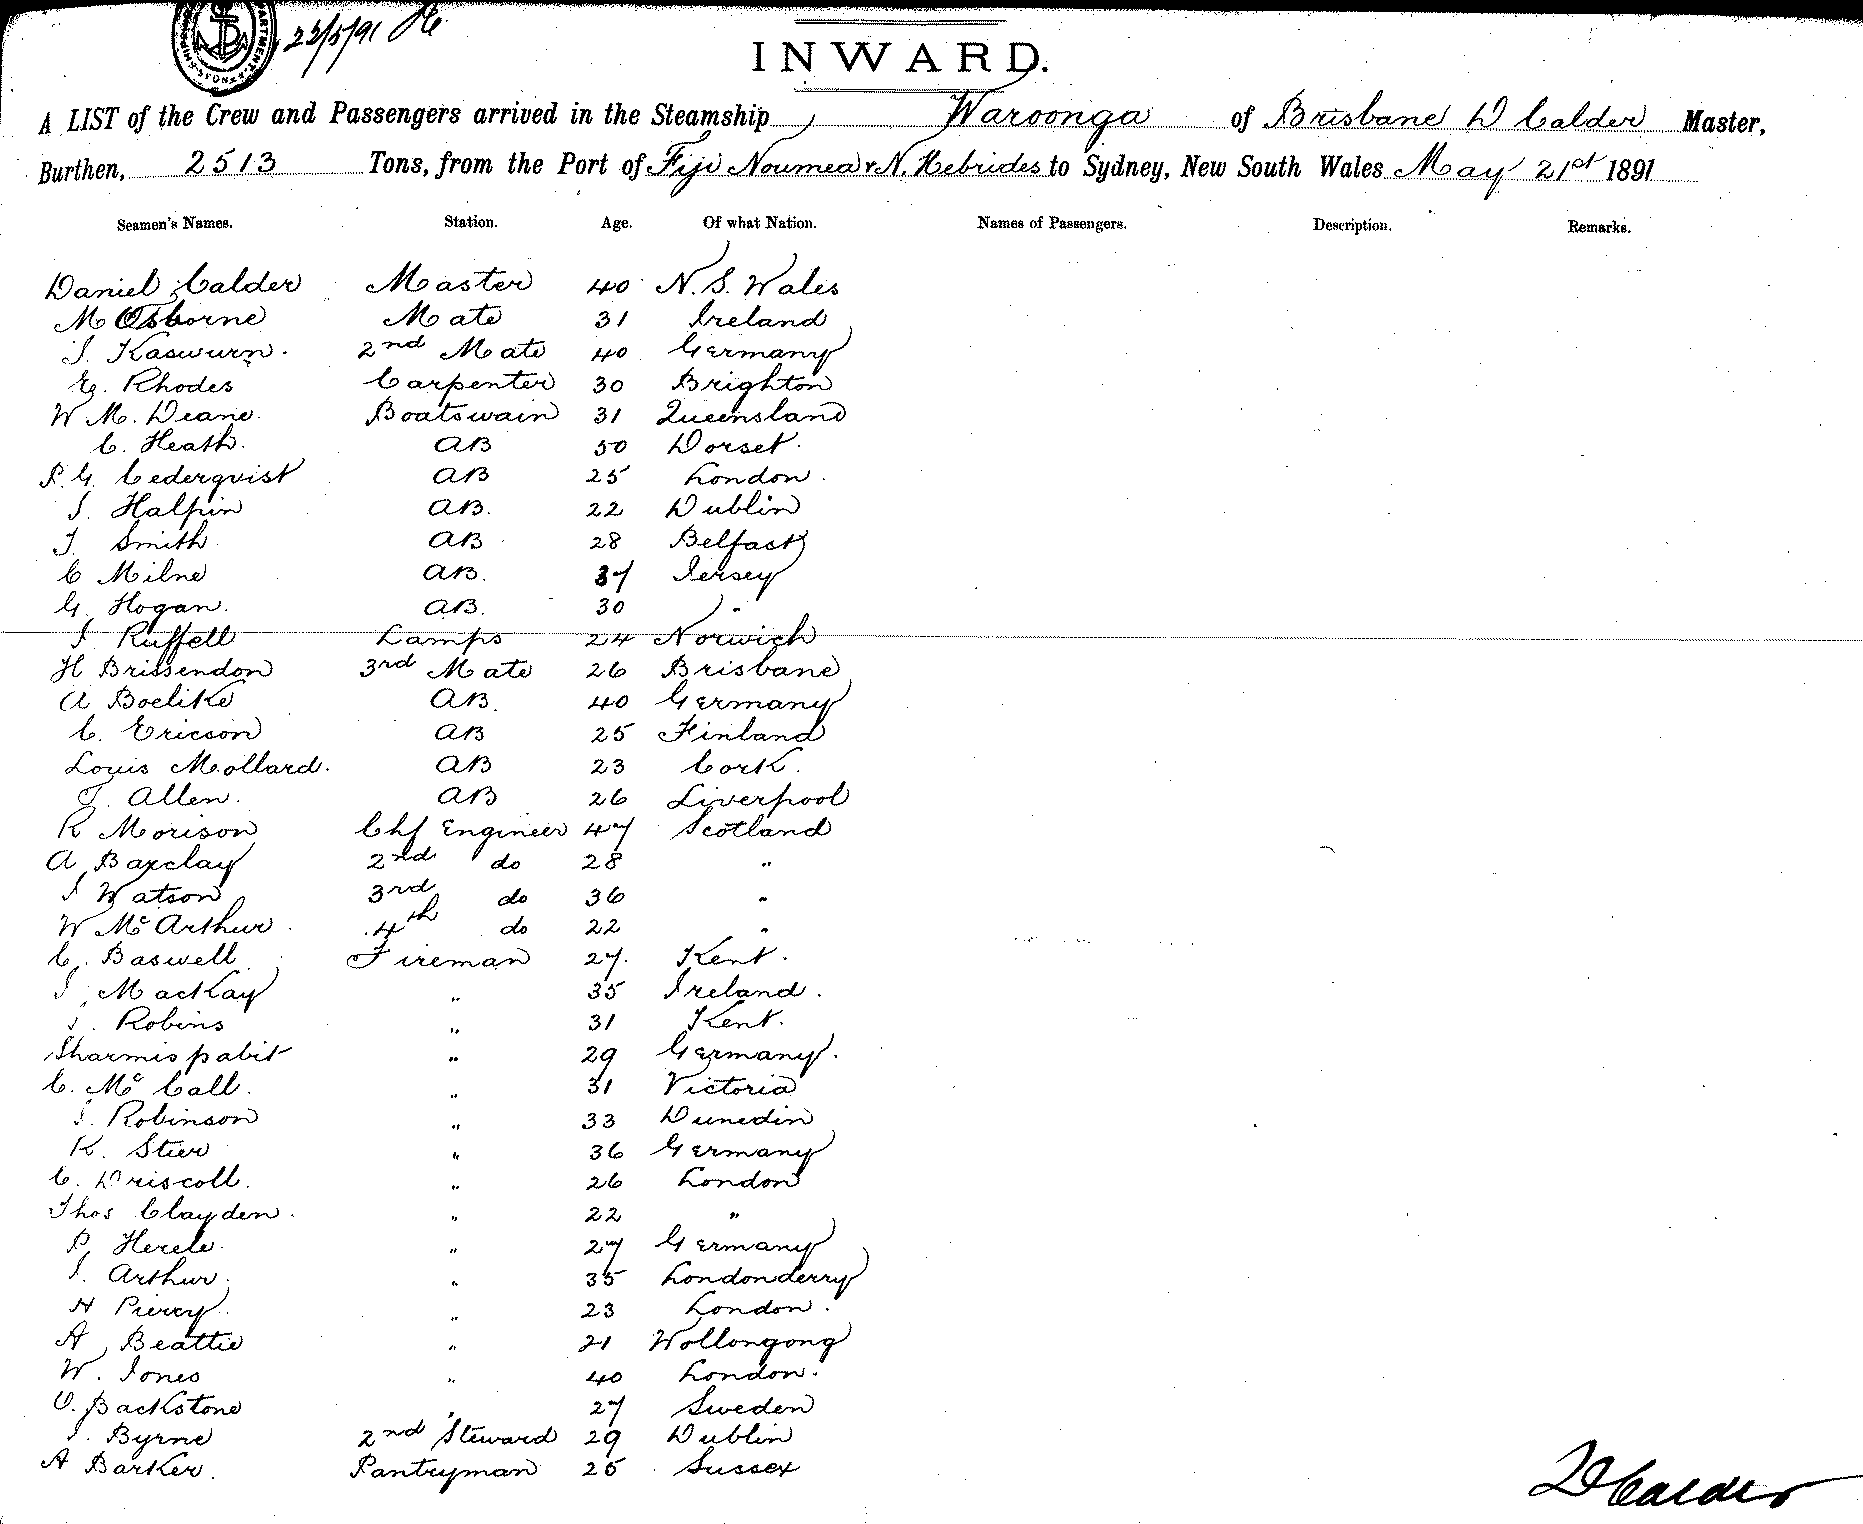 22/5/91
INWARD.
A LIST of the Crew and Passengers arrived in the Steamship Waroonga of Brisbane D Calder Master,
Burthen, 2513 Tons, from the Port of Fiji Noumea & N. Hebrides to Sydney, New South Wales May 21st 1891
Seamen's Names. Station. Age. Of what Nation. Names of Passengers. Description. Remarks.
Daniel Calder Master 40 N.S. Wales
M Osborne Mate 31 Ireland
J. Kaswurn. 2nd Mate 40 Germany
E. Rhodes Carpenter 30 Brighton
W M. Deane. Boatswain 31 Queensland
C. Heath. AB 50 Dorset.
P. G. Cederqvist AB 25 London.
J. Halpin AB. 22 Dublin
J. Smith AB 28 Belfast
C Milne AB. 37 Jersey
G. Hogan. AB. 30 "
J Ruffell Lamps 24 Norwich
H Brissendon 3rd Mate 26 Brisbane
A Boelike AB. 40 Germany
C. Ericson AB 25 Finland
Louis Mollard. AB 23 Cork.
J. Allen. AB 26 Liverpool
R Morison Chf Engineer 47 Scotland
A Barclay 2nd do 28 "
J Watson 3rd do 36 "
W McArthur 4th do 22 "
C. Baswell Fireman 27. Kent.
J. MacKay " 35 Ireland.
J. Robins " 31 Kent.
" 29 Germany.
C. McCall. " 31 Victoria
J. Robinson " 33 Dunedin
K. Stier " 36 Germany
C. Driscoll. " 26 London
Thos Clayden. " 22 "
P. Herele. " 27 Germany
J. Arthur. " 35 Londonderry
H Piercy. " 23 London.
A Beattie " 21 Wollongong
W. Jones " 40 London.
O. Backstone " 27 Sweden
J. Byrne 2nd Steward 29 Dublin
A Barker. Pantryman 25 Sussex
D Calder